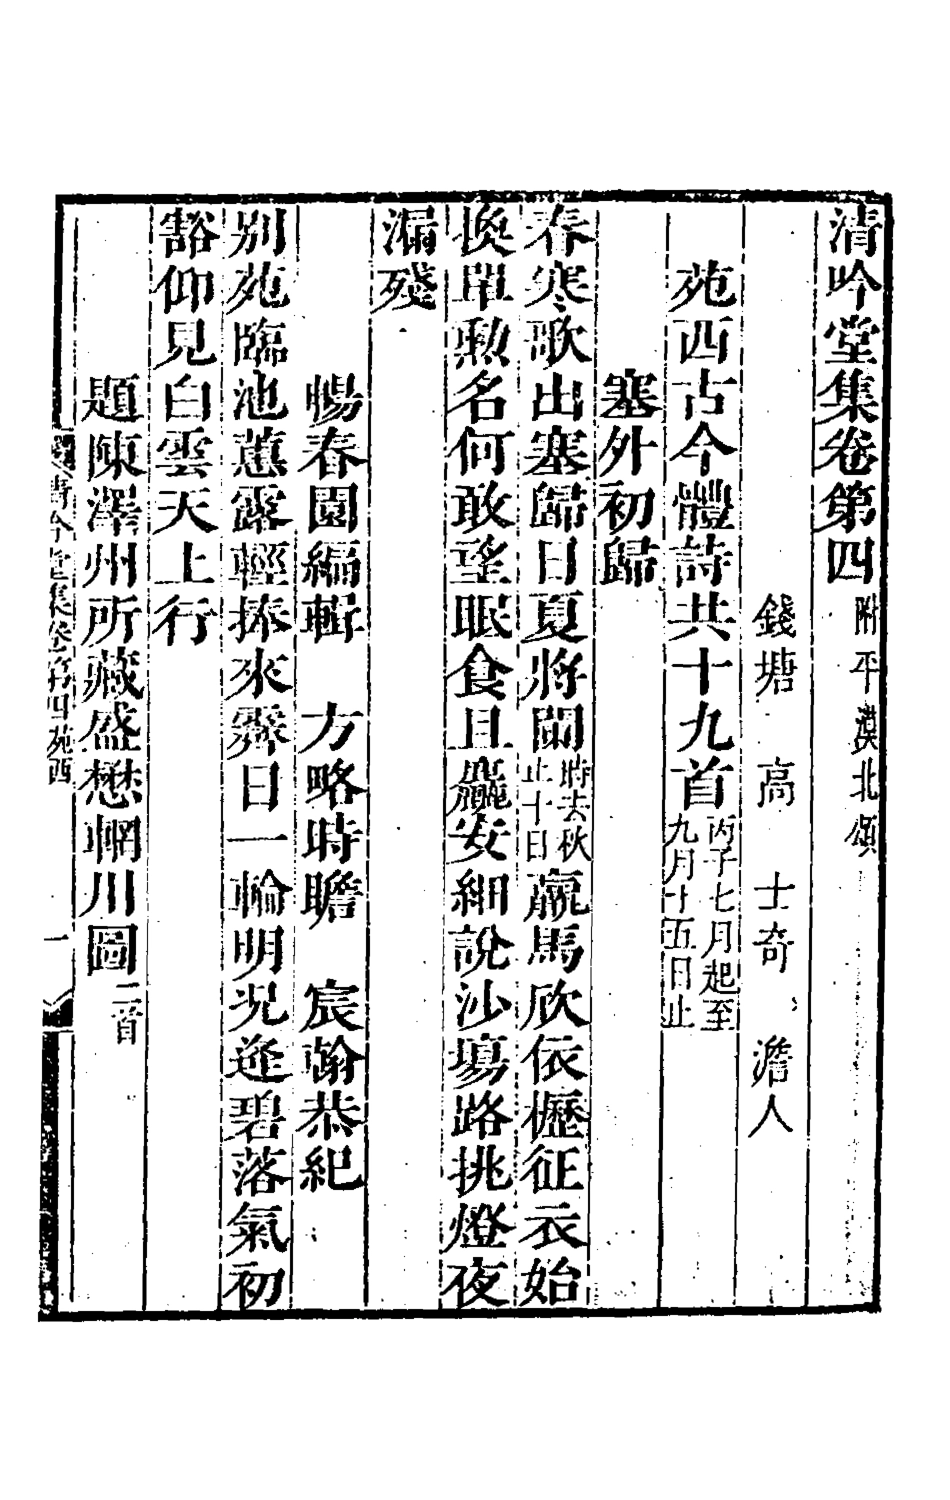 清吟堂集卷第四 附平漠北頌
錢塘 高 士奇 澹人
苑西古今體詩共十九首 丙子七月起至九月十五日止
塞外初歸
春寒歌出塞歸日夏將闌 時去秋止十日 羸馬欣依櫪征衣始
換單勲名何敢望眠食且麤安細說沙塲路挑燈夜
漏殘
暢春園編輯 方略時瞻 宸翰恭紀
別苑臨池蕙露輕捧來霽日一輪明况逢碧落氣初
豁仰見白雲天上行
題陳澤州所藏盛懋輞川圖 二首
清吟堂集卷第四苑西 一